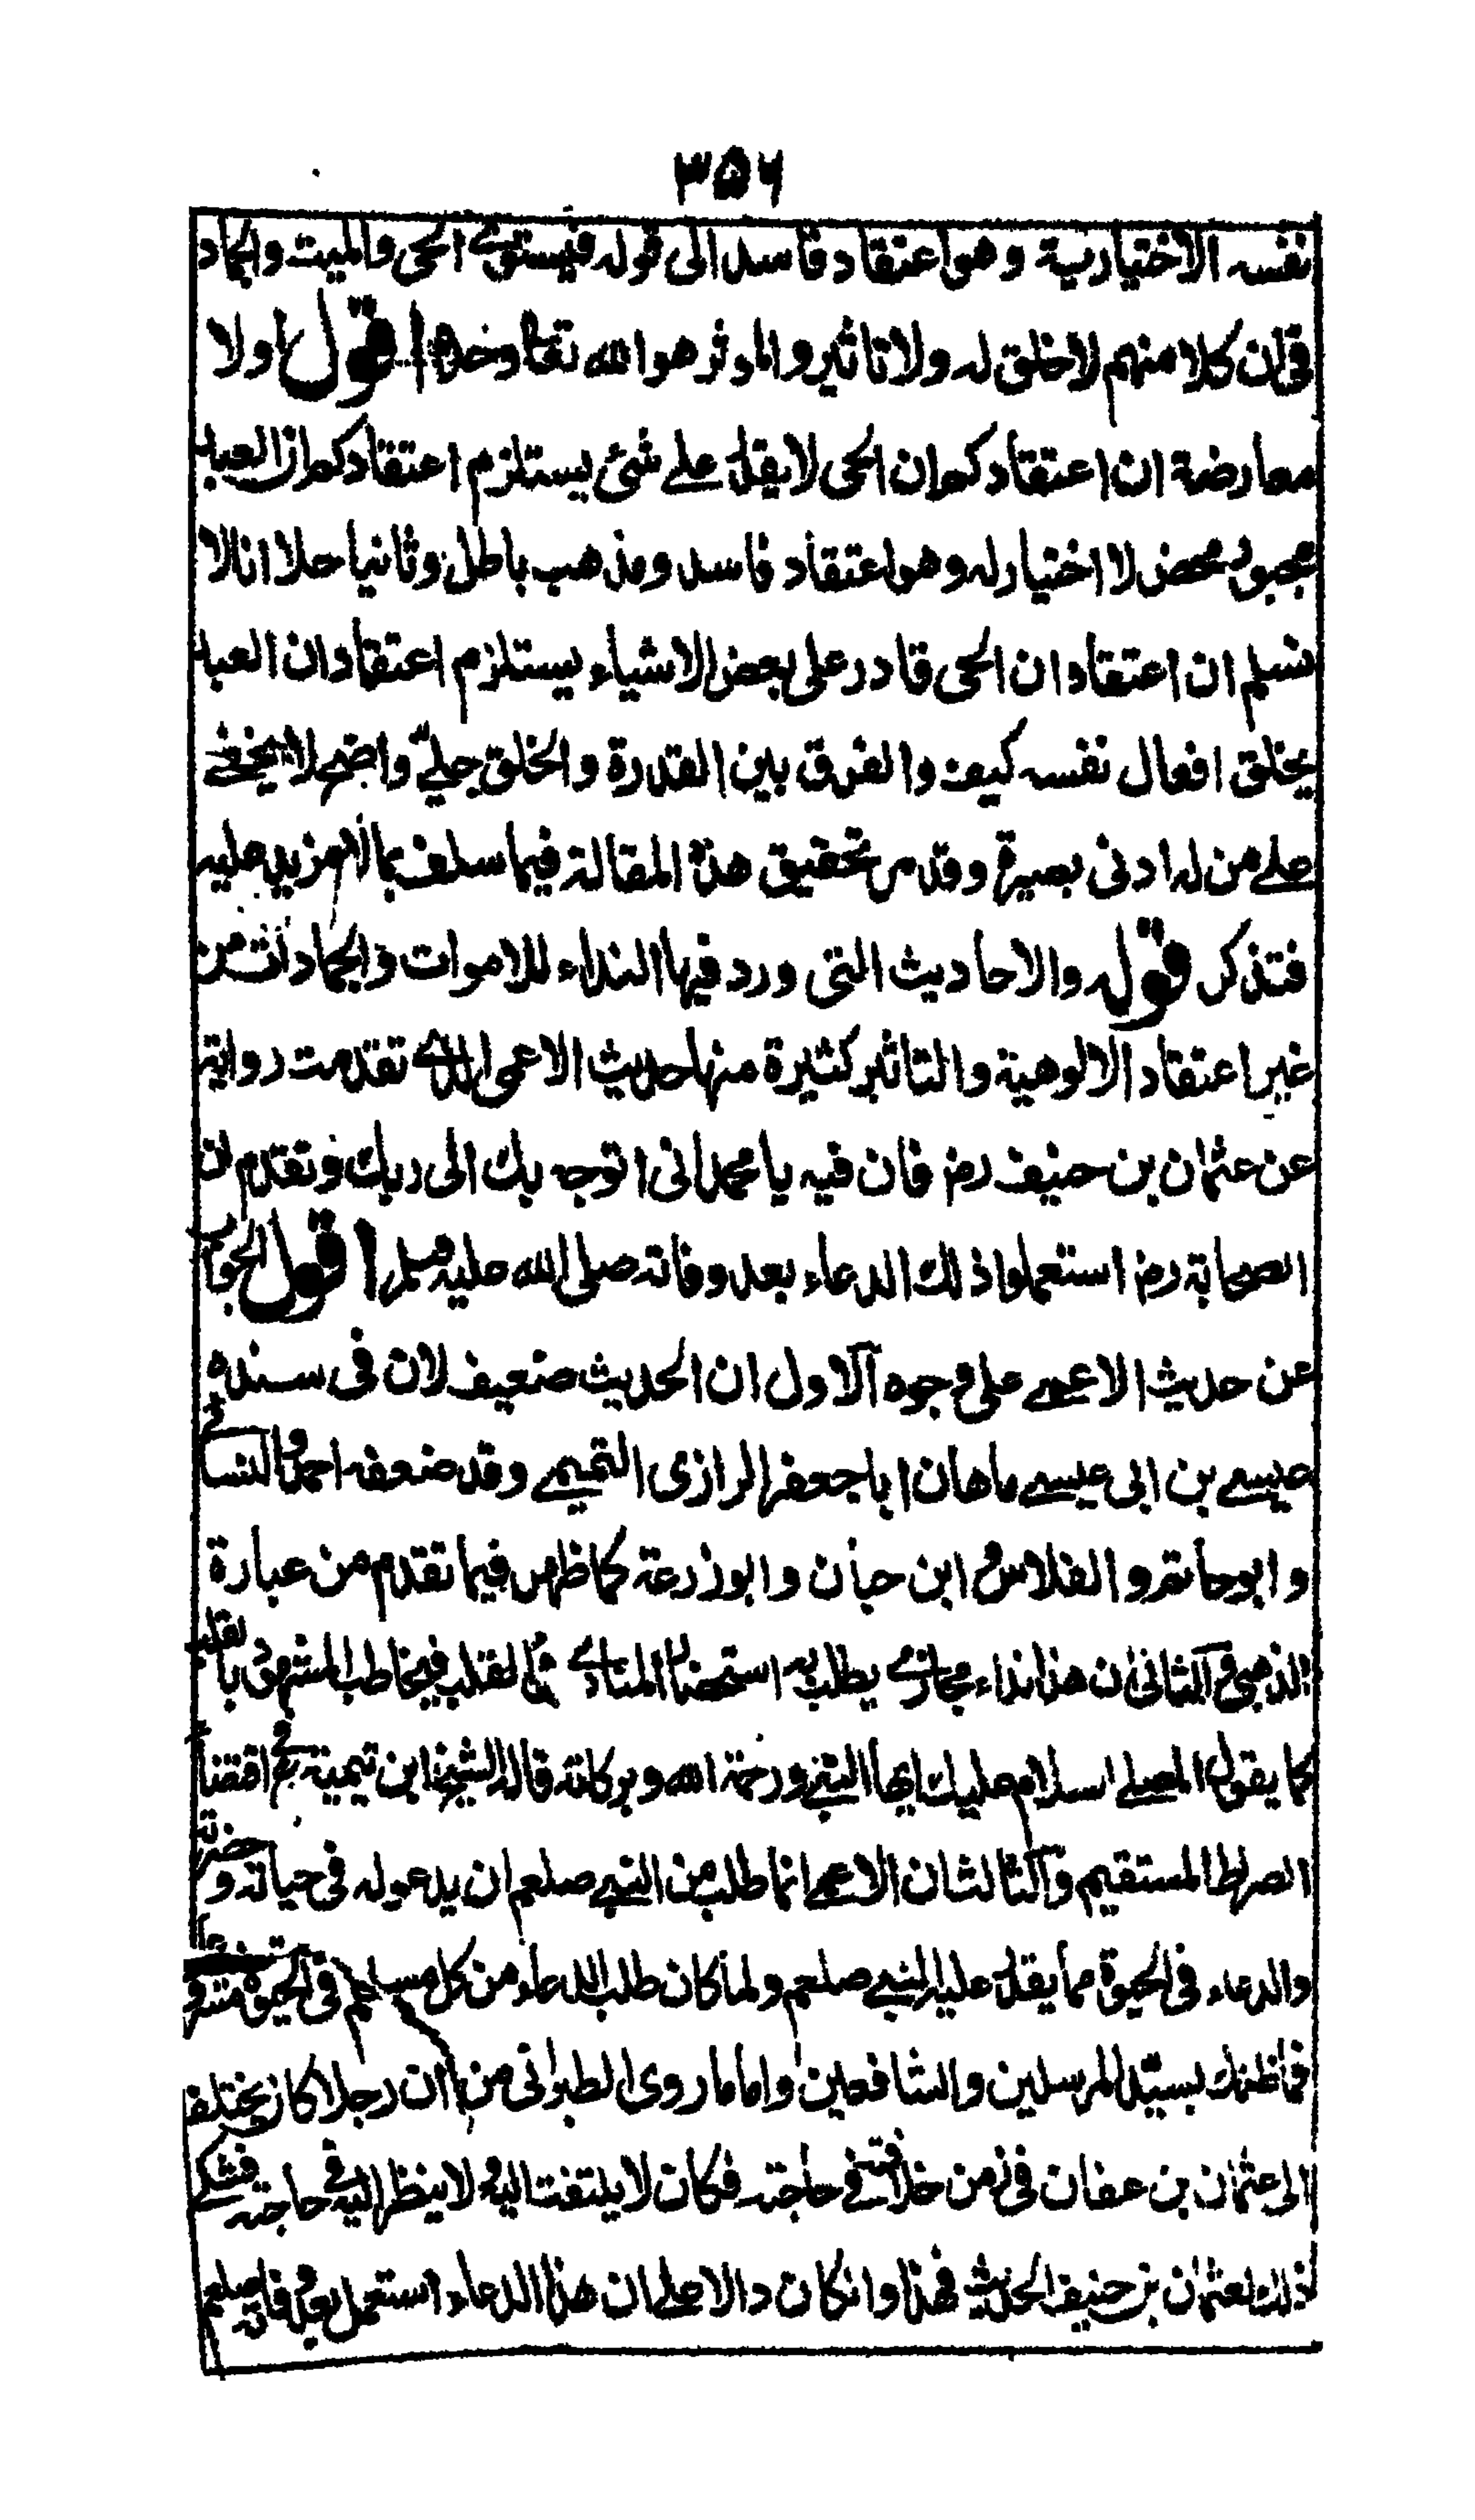 ٣٥٦
نفسه الاختيارية وهو اعتقاد فاسد الى قوله فيستوى الحى والميت والجماد
فى ان كلا منهم لا خلق له ولا تاثير والموثر هو الله تعالى وحده اقول اولا
معارضة ان اعتقاد كون الحى لا يقدر على شئ يستلزم اعتقاد كون العباد
مجبور محض لا اختيار له وهو اعتقاد فاسد ومذهب باطل وثانيا حلا انا لا
نسلم ان اعتقاد ان الحى قادر على بعض الاشياء يستلزم اعتقاد ان العباد
يخلق افعال نفسه كيف والفرق بين القدرة والخلق جلى واضح لا يخفى
على من له ادنى بصيرة وقد مر تحقيق هذه المقالة فيما سلف بما لا مزيد عليه
فتذكر قوله والاحاديث التى ورد فيها النداء للاموات والجمادات من
غير اعتقاد الالوهية والتاثير كثيرة منها حديث الاعمى الذى تقدمت روايته
عن عثمان بن حنيف رض فان فيه يا محمد انى اتوجه بك الى ربك وتقدم ان
الصحابة رض استعملوا ذلك الدعاء بعد وفاته صلى الله عليه وسلم اقول الجواب
عن حديث الاعمى على وجوه الاول ان الحديث ضعيف لان فى سنده
عيسى بن ابى عيسى ماهان ابا جعفر الرازى التميمى وقد ضعفه احمد والنسائى
وابو حاتم والفلاس وابن حبان وابو زرعة كما ظهر فيما تقدم من عبارة
الذهبى والثانى ان هذا نداء مجازى يطلب به استحضار المنادى فى القلب فيخاطب المشهود بالقلب
كما يقول المصلى السلام عليك ايها النبى ورحمة الله وبركاته قاله الشيخ ابن تيمية فى اقتضاء
الصراط المستقيم والثالث ان الاعمى انما طلب من النبى صلعم ان يدعو له فى حياته وحضرته
والدعاء فى الحيوة مما يقدر عليه النبى صلعم ولما كان طلب الدعاء من كل مسلم فى الحيوة مشروعا
فما ظنك بسيد المرسلين والشافعين واما ما روى الطبرانى من ان رجلا كان يختلف
الى عثمان بن عفان فى زمن خلافته فى حاجته فكان لا يلتفت اليه ولا ينظر اليه فى حاجته فشكى
ذلك لعثمان بن حنيف الحديث فهذا وان كان دالا على ان هذا الدعاء استعمل بعد وفاته صلعم